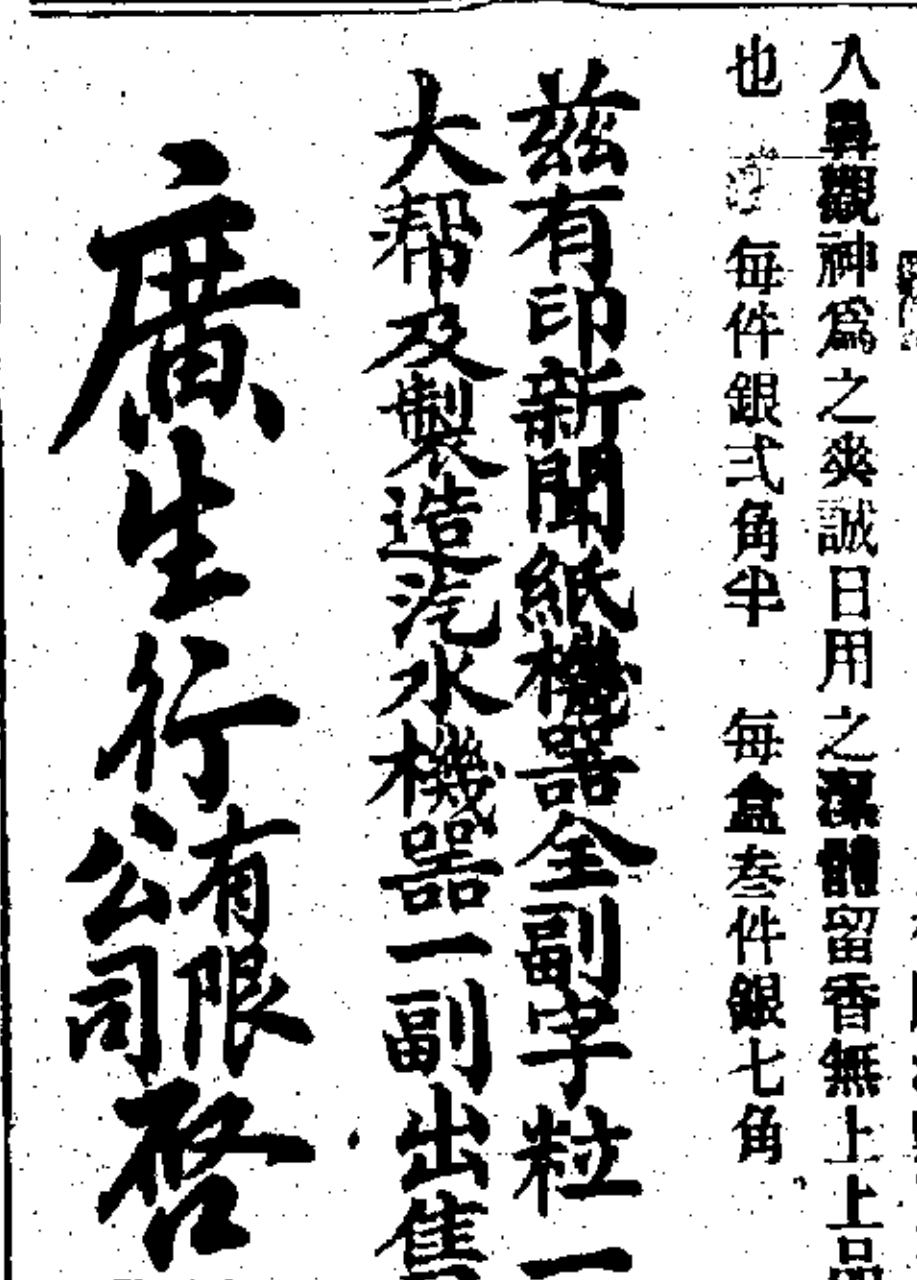 入鼻觀神爲之爽誠日用之潔體留香無上上品
也 每件銀弍角半 每盒叁件銀七角
茲有印新聞紙機器全副字粒一
大幫及製造汽水機器一副出售
廣生行有限公司啓